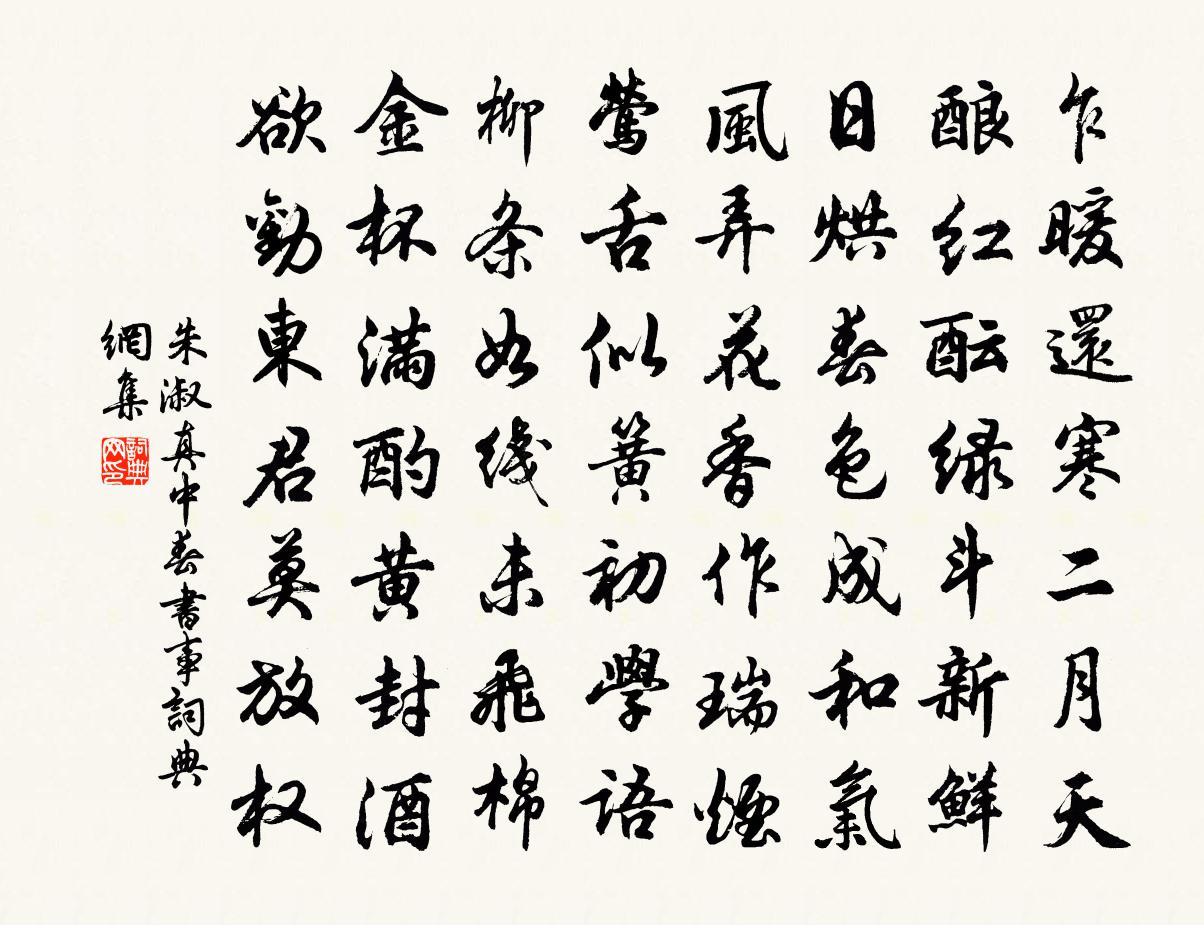 乍暖還寒二月天
酿红酝绿斗新鮮
日烘春色成和氣
風弄花香作瑞煙
鶯舌似簧初學語
柳条如线未飛棉
金杯满酌黄封酒
欲勸東君莫放权
朱淑真中春書事詞典
網集
詞典网印